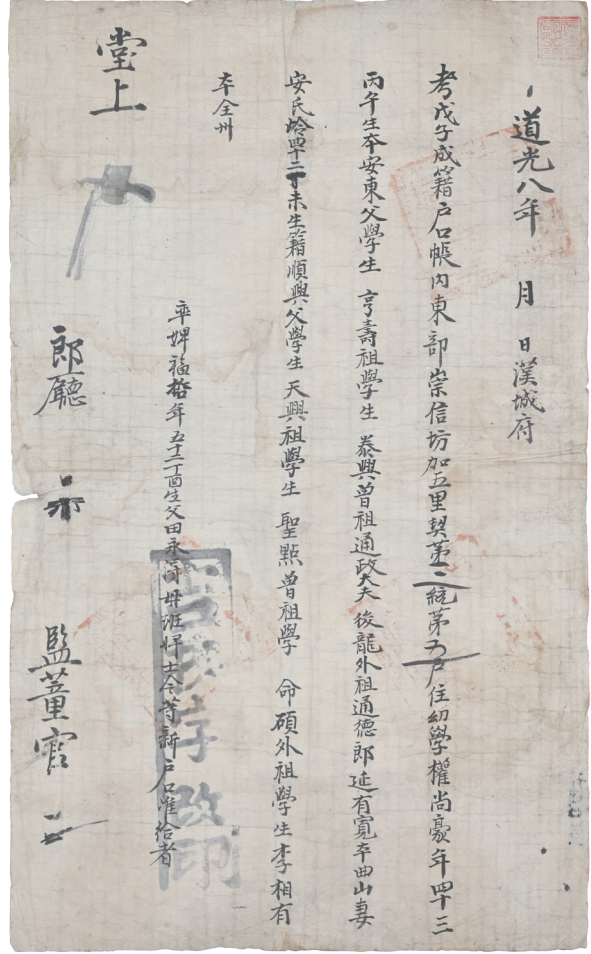 道光八年 月 日漢城府
考戊子成籍戶口帳內東部崇信坊加五里契第二統第五戶住幼學權尙豪年四十三
丙午生本安東父學生 亨壽祖學生 泰興曾祖通政大夫 後龍外祖通德郎延有寬本曲山妻
安氏齡四十二丁未生籍順興父學生 天興祖學生 聖點曾祖學 命碩外祖學生李相有
本全州
率婢福 年五十二丁酉生父田永 母班婢士今等新戶口准給者
堂上
郎廳
監董官
改印